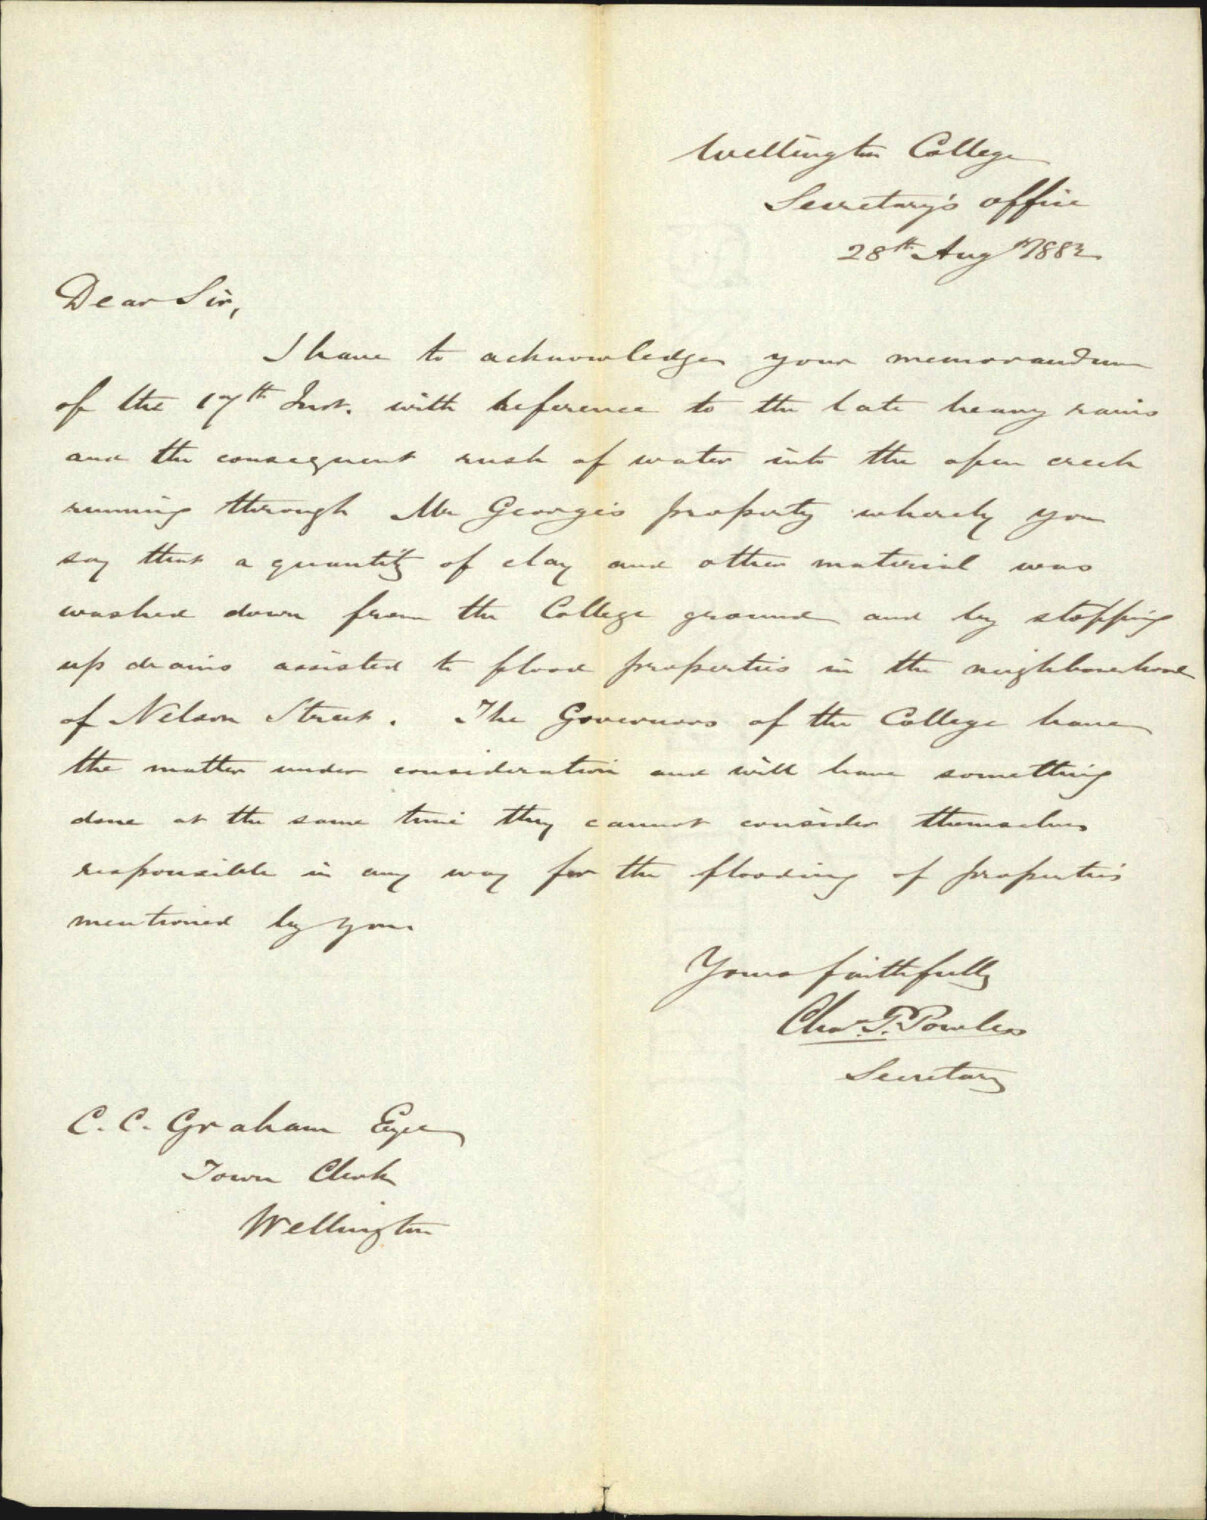 Wellington College
Secretary's office
28th Augt 1882
Dear Sir,
I have to acknowledge your memorandum
of the 17th Inst. with reference to the late heavy rains
and the consequent rush of water into the open creek
running through Mr George's property whereby you
say that a quantity of clay and other material was
washed down from the College ground and by stopping
up drains assisted to flood properties in the neighbourhood
of Nelson Street. The Governors of the College have
the matter under consideration and will have something
done at the same time they cannot consider themselves
responsible in any way for the flooding of properties
mentioned by you
Yours faithfully
Chas. P. Powles
Secretary
C. C. Graham Esqre
Town Clerk
Wellington